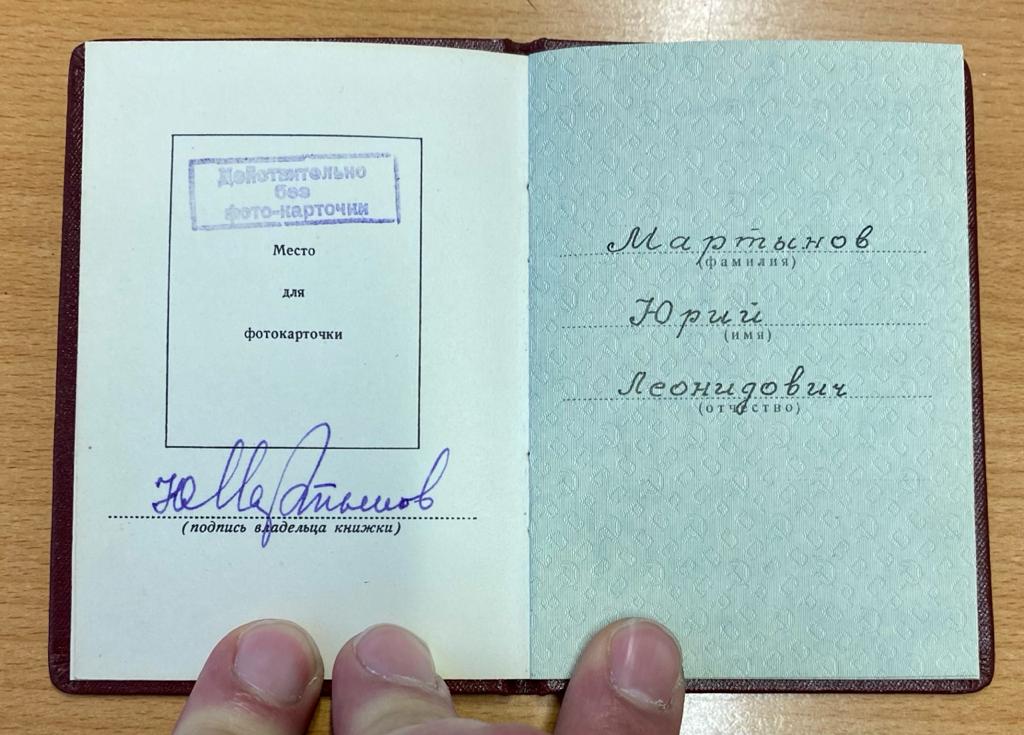 Действительно
без
фото-карточки
Место
для
фотокарточки
ЮМартынов
(подпись владельца книжки)
Мартынов
(фамилия)
Юрий
(имя)
Леонидович
(отчество)